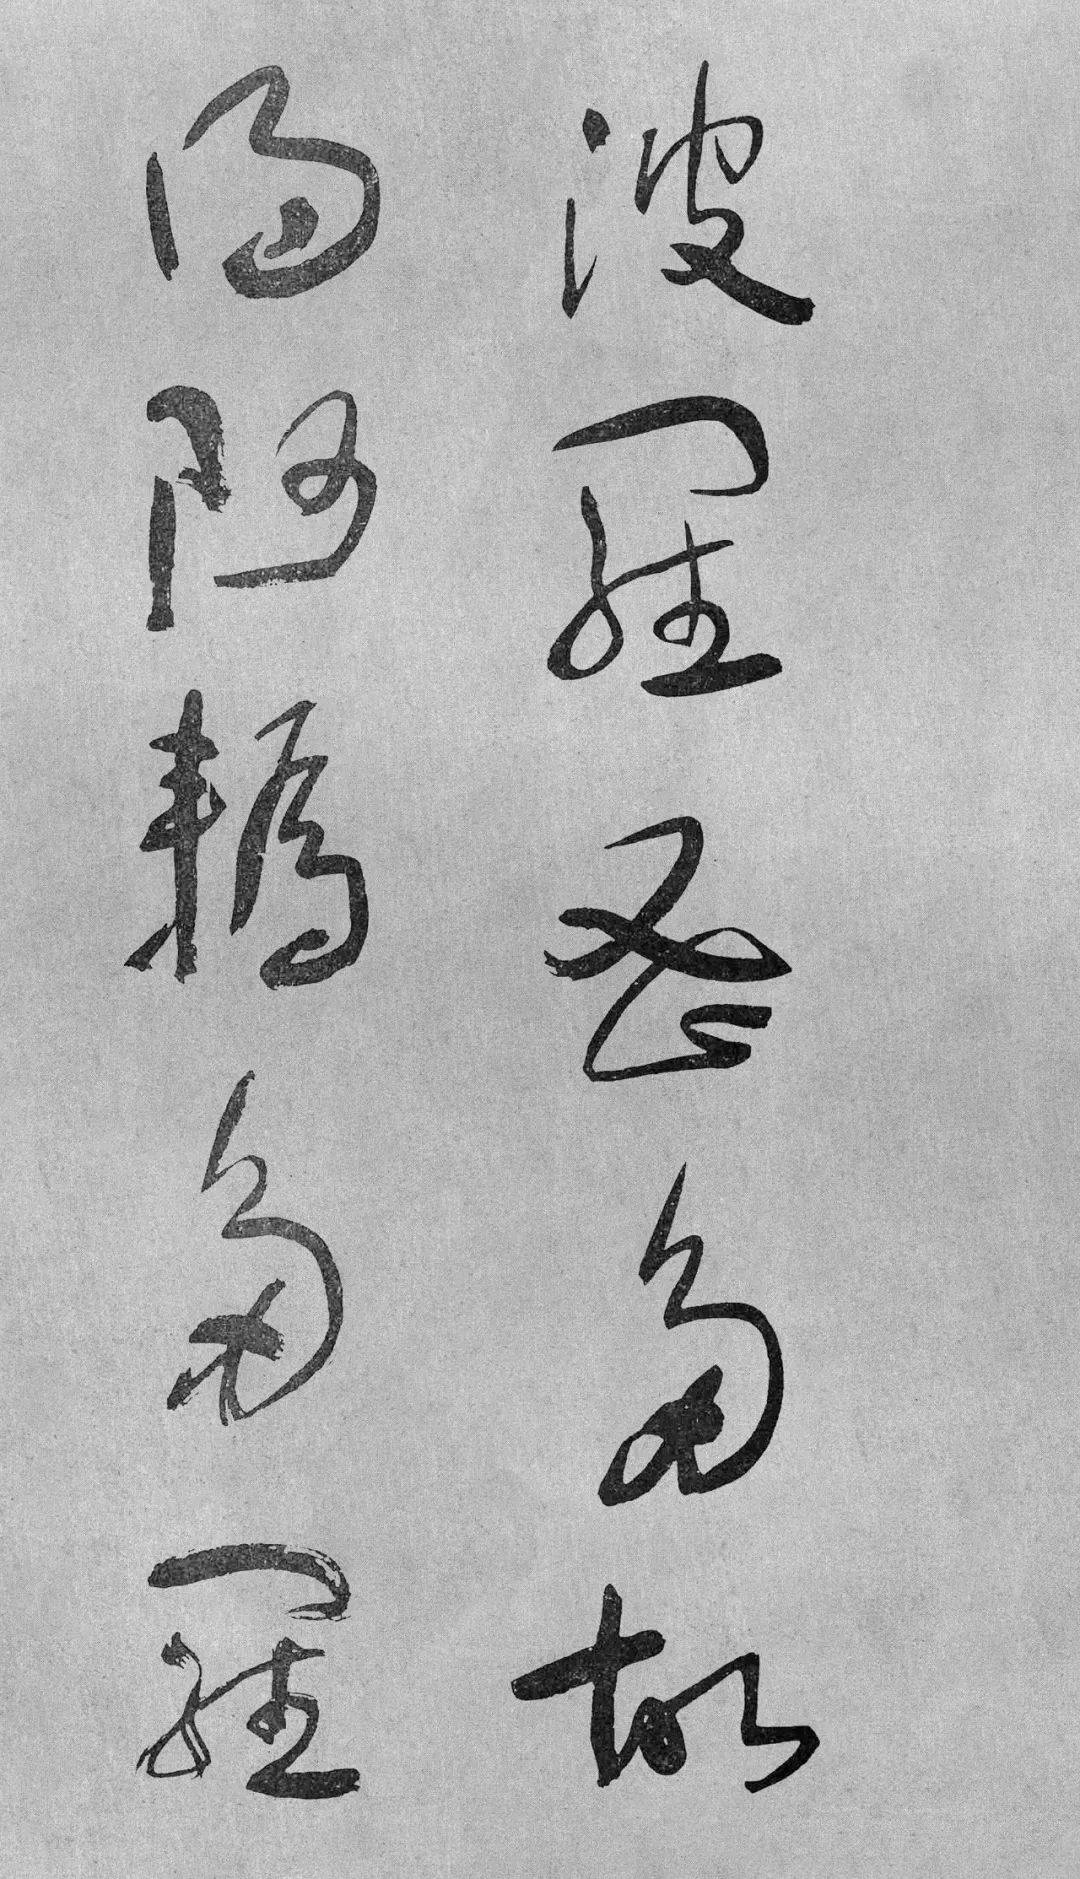 波羅蜜多故
得阿耨多羅